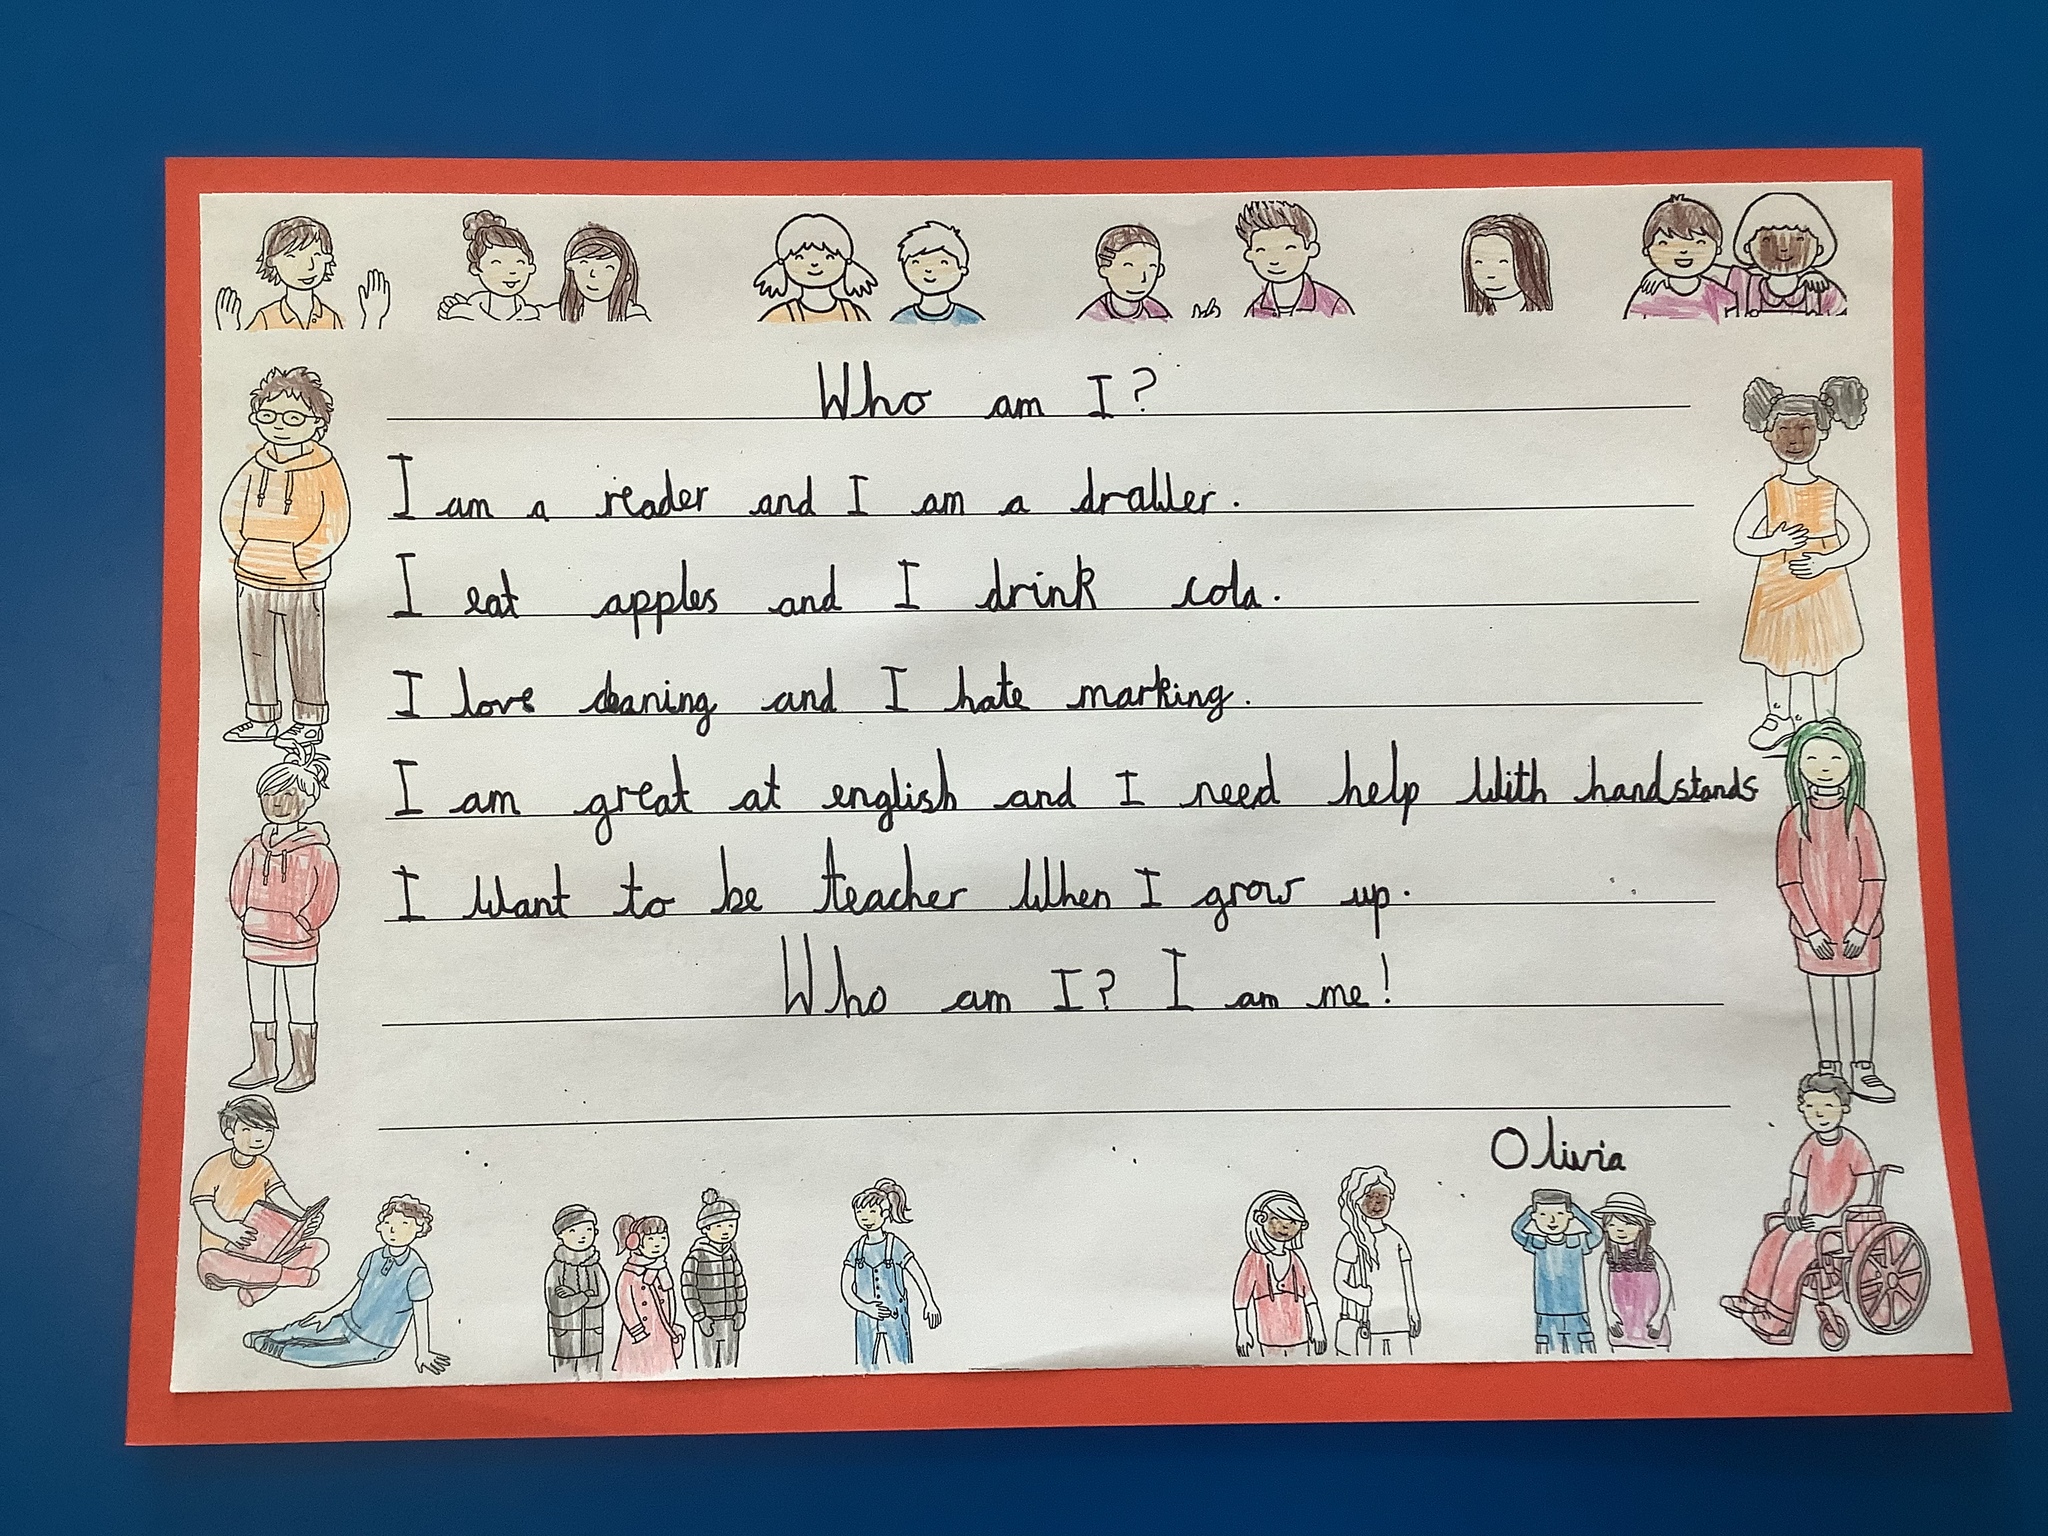 Who am I?
I am a reader and I am a drawer.
I eat apples and I drink cola.
I love cleaning and I hate marking.
I am great at english and I need help with handstands
I want to be teacher when I grow up.
Who am I? I am me!
Olivia